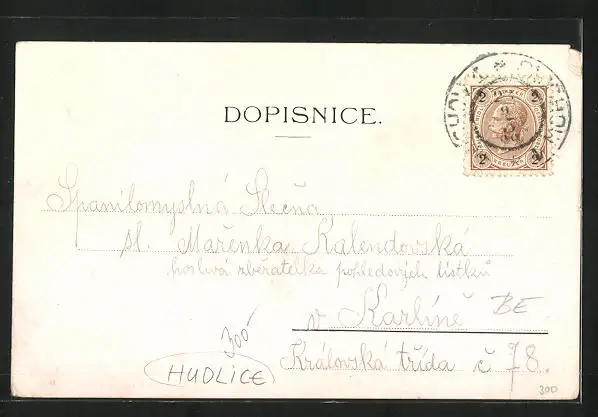 DOPISNICE.
2 2
2 2
KREUZER
Spanilomyslná Slečna
sl. Mařenka Kalendovská
horlivá zběratelka pohledových lístků
v Karlíně BE
300
Královská třída č 78.
HUDLICE
300